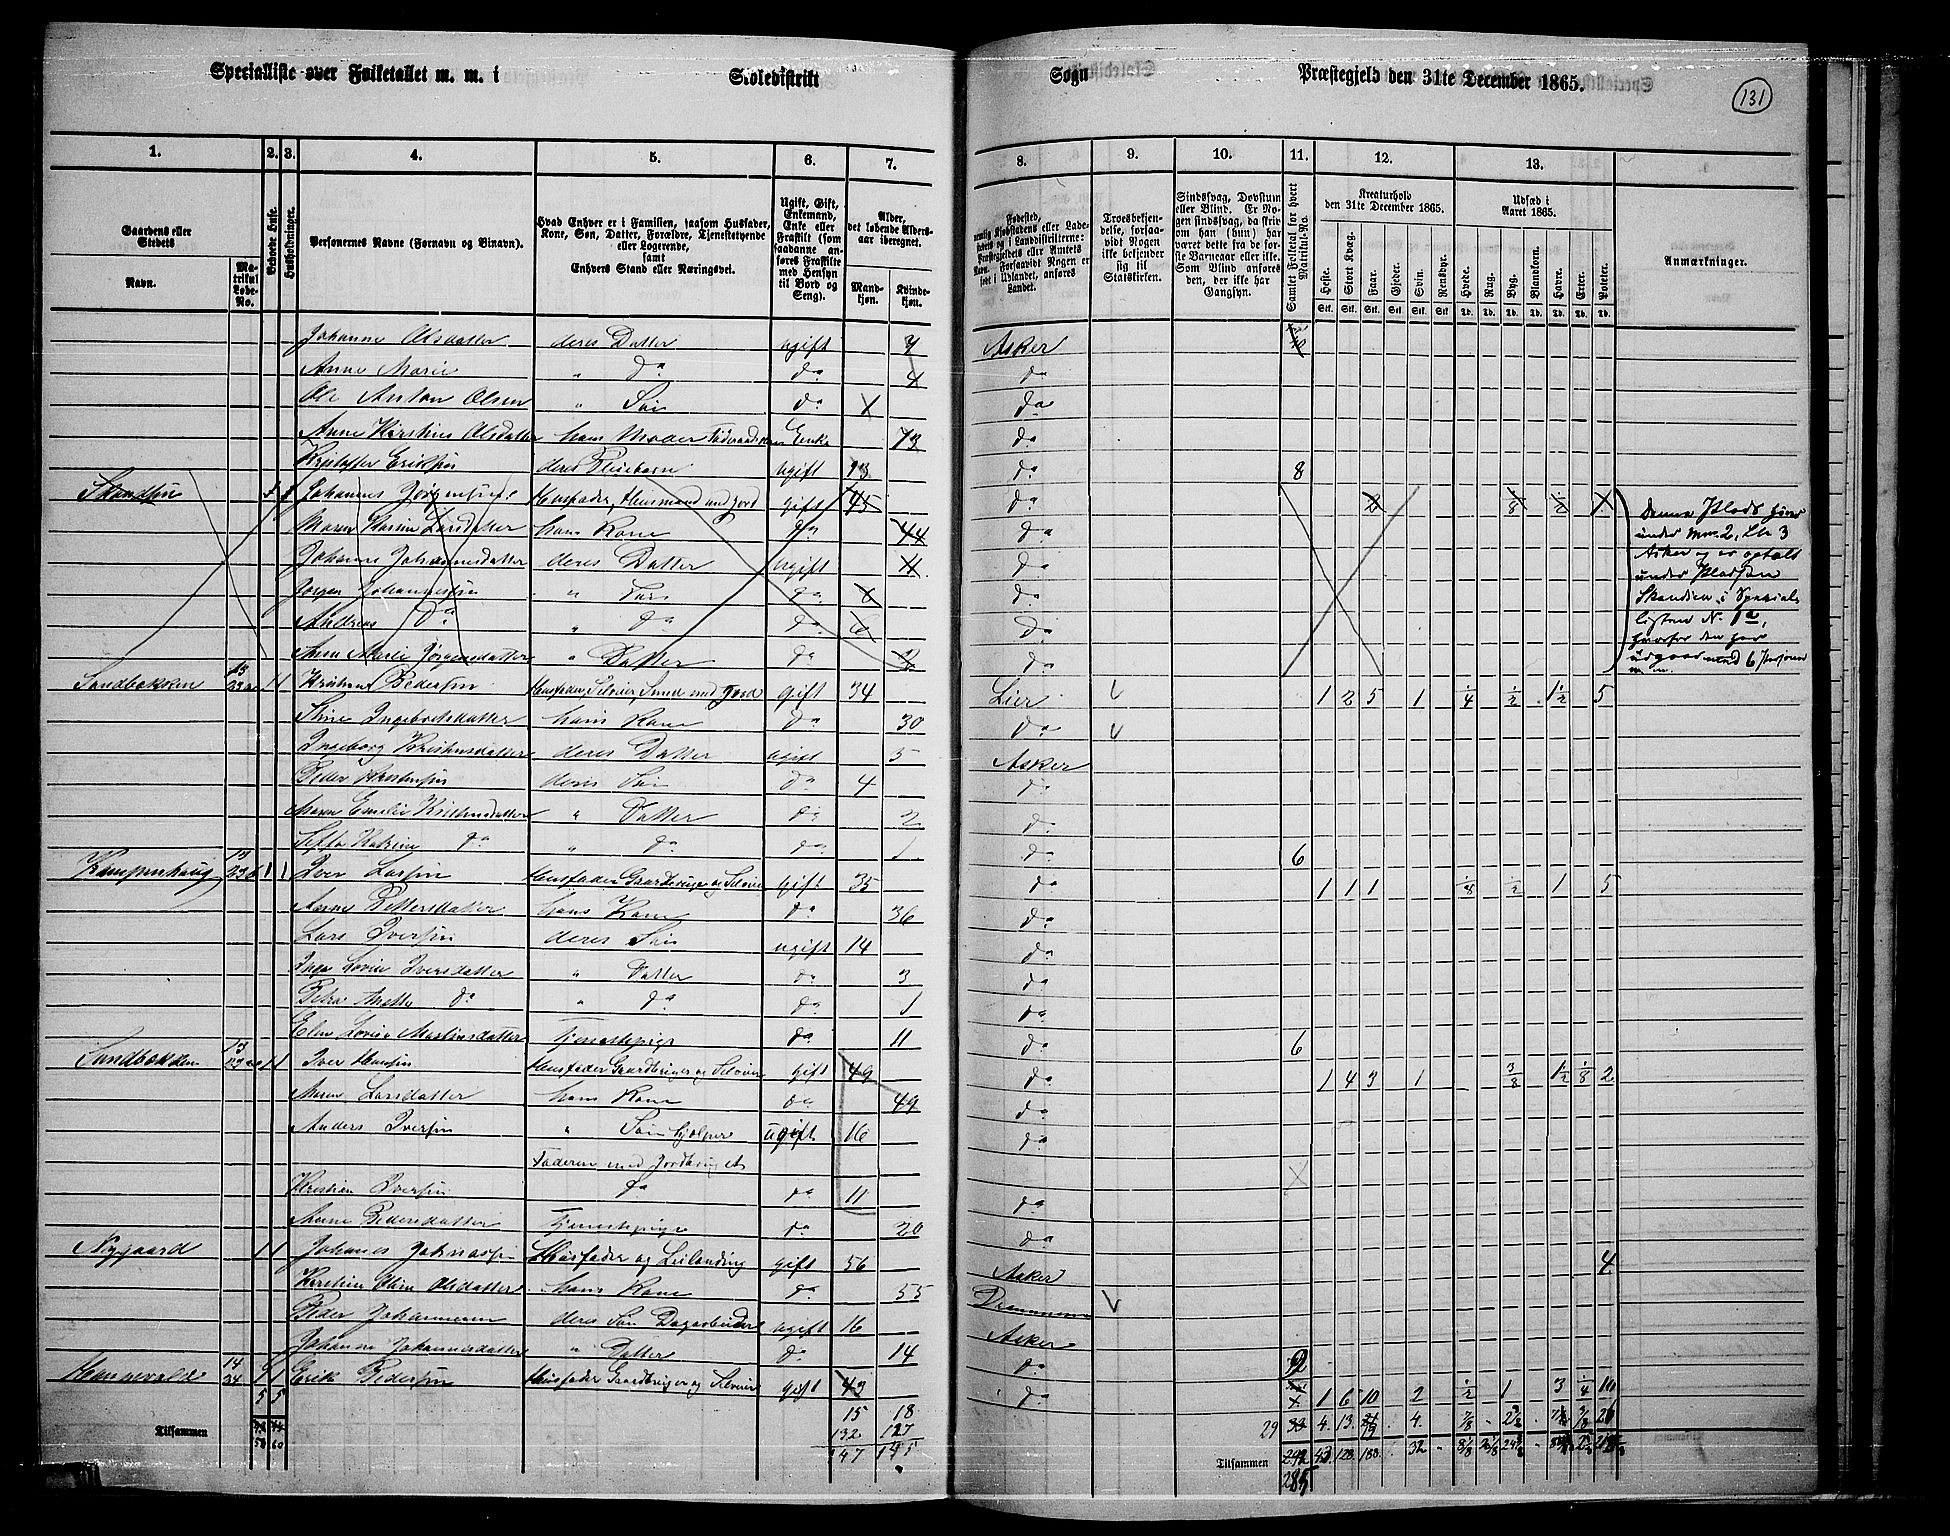 Specialliste over Folketallet m. m. i Skoledistrikt Sogn Præstegjeld den 31te December 1865.
131
1. 2. 3. 4. 5. 6. 7. 8. 9. 10. 11. 12. 13.
Gaardens eller Stedets
Navn.
Matrikul Løbe-No.
Beboede Huse.
Husholdninger.
Personernes Navne (Fornavn og Tilnavn).
Hvad Enhver er i Familien, saasom Husfader, Kone, Søn, Datter, Forældre, Tjenestetyende eller Logerende,
samt
Enhvers Stand eller Næringsvei.
Ugift, Gift, Enkemand, Enke eller Fraskilt (som saadanne anføres Fraskilte med Hensyn til Bord og Seng).
Alder, det løbende Aldersaar iberegnet.
Mandkjøn. Kvindekjøn.
Fødested,
Troesbekjendelse, forsaavidt Nogen ikke bekjender sig til Statskirken.
Sindssvag, Døvstum eller Blind. Er Nogen sindssvag, da skrives om han (hun) har været dette fra de første Barneaar eller ikke. Som Blind anføres den, der ikke har Gangsyn.
Samlet Folketal for hvert Matrikul-No.
Kreaturhold den 31te December 1865.
Heste. Stort Kvæg. Faar. Gjeder. Svin. Rensdyr.
Udsæd i Aaret 1865.
Hvede. Rug. Byg. Blandkorn. Havre. Erter. Poteter.
Anmærkninger.
Johanne Olsdatter deres Datter ugift 7 Asker
Anne Marie " do do 4 do
Ole Anton Olsen " Søn do 1 do
Anne Kirstine Olsdatter hans Moder Enke 73 do
Kristoffer Eriksen deres Pleiebarn ugift 13 do 8
Skandsen 1 1 Johannes Jørgensen Husfader, Husmand med Jord gift 45 do 2
Maren Karine Larsdatter hans Kone do 44 do
Johanne Johannesdatter deres Datter ugift 11 do
Jørgen Johannessen " Søn do do
Andreas do " do do 6 do
Anne Marie Jørgensdatter " Datter do 2 do
Denne Plads hører
under No. 2, Lb 3
Asker og er optalt
under Pladsen
Skandsen i Special-
listen No. 1a,
hvorfor den her
udgaar med 6 Personer
m. m.
Sandbakken 13 23 1 1 Kristian Pedersen Husfader, Selveier, Smed med Jord gift 34 Lier 1 2 5 1 1/4 1/2 1 1/2 5
Stine Ingebretsdatter hans Kone do 30 do
Ingeborg Kristensdatter deres Datter ugift 5 Asker
Peder Kristensen deres Søn do 4 do
Maren Emilie Kristensdatter " Datter do 2 do
do " do do 1 do 6
Kampenhaug 13 23b 1 1 Iver Larsen Husfader Gaardbruger og Selveier gift 35 do 1 1 1 1/8 1/2 1 5
Anne Pettersdatter hans Kone do 36 do
Lars Iversen deres Søn ugift 14 do
Inga Lovise Iversdatter " Datter do 3 do
Petra Anette do " do do 1 do
Elen Lovise Martinsdatter Tjenestepige do 11 do 6
Sandbakken 13 23 1 1 Iver Hansen Husfader Gaardbruger og Selveier gift 49 do 1 4 3 1 3/8 1 1/2 1/8 2
Maren Larsdatter hans Kone do 49 do
Anders Iversen " Søn hjelper ugift 16 do
Faderen med Jordbruget
Kristian Iversen do do 11 do
Anne Pedersdatter Tjenestepige do 20 do
Nygaard 1 1 Johannes Husfader og Leilænding gift 56 Asker 4
Kirstine Oline Olsdatter hans Kone do 55 Drammen
Peder Johannesen deres Søn Dagarbeider ugift 16 Asker
Johanne Johannesdatter " Datter do 14 do 9
14 24 1 1 Erik Pedersen Husfader Gaardbruger og Selveier gift 43 do 1 6 10 2 1/2 1 3 1/4 10
5 5 15 18 29 4 13 4 7/8
Tilsammen 58 60 132 127
147 145
Tilsammen 285